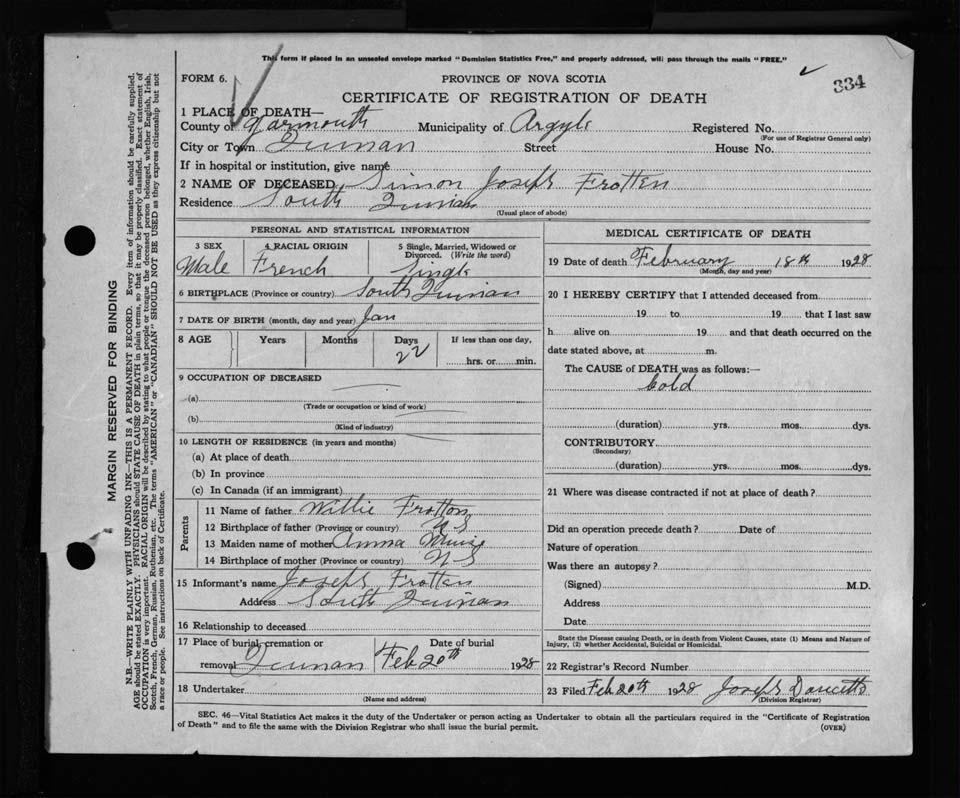 This form if placed in an unsealed envelope marked "Dominion Statistics Free," and properly addressed, will pass through the mails "FREE."
FORM 6.
PROVINCE OF NOVA SCOTIA
334
CERTIFICATE OF REGISTRATION OF DEATH
1 PLACE OF DEATH—
County of Yarmouth Municipality of Argyle Registered No.
(For use of Registrar General only)
City or Town Quinan Street House No.
If in hospital or institution, give name
2 NAME OF DECEASED Simon Joseph Frotten
Residence South Quinan
(Usual place of abode)
PERSONAL AND STATISTICAL INFORMATION
3 SEX 4 RACIAL ORIGIN 5 Single, Married, Widowed or Divorced. (Write the word)
Male French Single
6 BIRTHPLACE (Province or country) South Quinan
7 DATE OF BIRTH (month, day and year) Jan
8 AGE Years Months Days If less than one day,
22 hrs. or min.
9 OCCUPATION OF DECEASED
(a)
(Trade or occupation or kind of work)
(b)
(Kind of industry)
10 LENGTH OF RESIDENCE (in years and months)
(a) At place of death
(b) In province
(c) In Canada (if an immigrant)
Parents
11 Name of father Willie Frotton
12 Birthplace of father (Province or country) N S
13 Maiden name of mother Anna Muise
14 Birthplace of mother (Province or country) N S
15 Informant's name Joseph Frotten
Address South Quinan
16 Relationship to deceased
17 Place of burial, cremation or removal Quinan Date of burial Feb 20th 1928
18 Undertaker
(Name and address)
MEDICAL CERTIFICATE OF DEATH
19 Date of death February 18th 1928
(Month, day and year)
20 I HEREBY CERTIFY that I attended deceased from
19 to 19 that I last saw
h alive on 19 and that death occurred on the
date stated above, at m.
The CAUSE of DEATH was as follows:—
Cold
(duration) yrs. mos. dys.
CONTRIBUTORY
(Secondary)
(duration) yrs. mos. dys.
21 Where was disease contracted if not at place of death?
Did an operation precede death? Date of
Nature of operation
Was there an autopsy?
(Signed) M.D.
Address
Date
State the Disease causing Death, or in death from Violent Causes, state (1) Means and Nature of
Injury, (2) whether Accidental, Suicidal or Homicidal.
22 Registrar's Record Number
23 Filed Feb 20th 1928 Joseph Doucette
(Division Registrar)
SEC. 46—Vital Statistics Act makes it the duty of the Undertaker or person acting as Undertaker to obtain all the particulars required in the "Certificate of Registration
of Death" and to file the same with the Division Registrar who shall issue the burial permit.
(OVER)
MARGIN RESERVED FOR BINDING
N.B.—WRITE PLAINLY WITH UNFADING INK—THIS IS A PERMANENT RECORD. Every item of information should be carefully supplied.
AGE should be stated EXACTLY. PHYSICIANS should STATE CAUSE OF DEATH in plain terms, so that it may be properly classified. Exact statement of
OCCUPATION is very important. RACIAL ORIGIN will be described by stating to what people or tongue the deceased person belonged, whether English, Irish,
Scotch, French, German, Russian, Ruthenian, etc. The terms "AMERICAN" or "CANADIAN" SHOULD NOT BE USED as they express citizenship but not
a race or people. See instructions on back of Certificate.